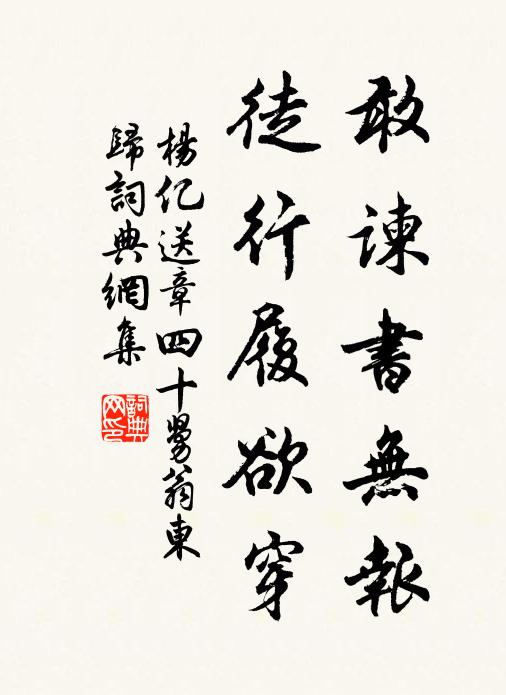 敢諫書無報
徒行履欲穿
楊億送章四十舅翁東
歸詞典網集
詞典網印